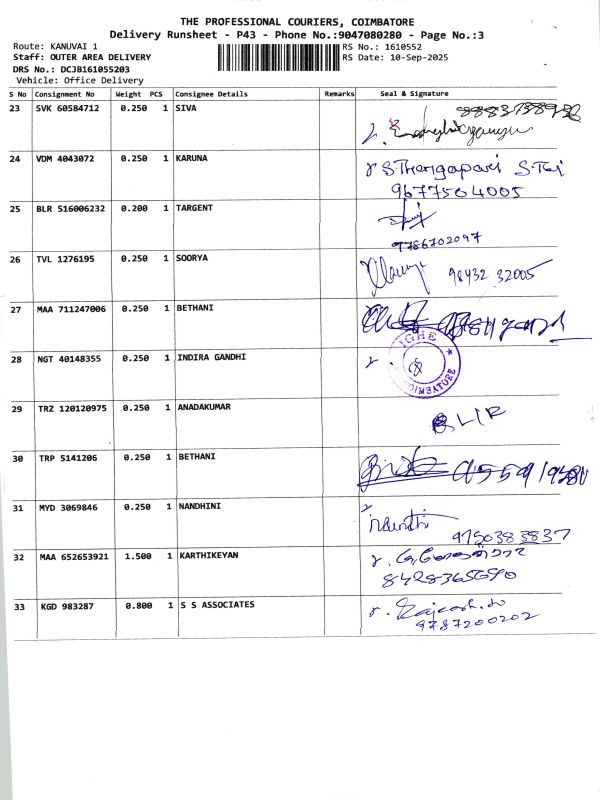 THE PROFESSIONAL COURIERS, COIMBATORE
Delivery Runsheet - P43 - Phone No.:9047080280 - Page No.:3
Route: KANUVAI 1
RS No.: 1610552
Staff: OUTER AREA DELIVERY
RS Date: 10-Sep-2025
DRS No.: DCJB161055203
Vehicle: Office Delivery
S No Consignment No Weight PCS Consignee Details Remarks Seal & Signature
23 SVK 60584712 0.250 1 SIVA
24 VDM 4043072 0.250 1 KARUNA S.Thangapari
9677504005
25 BLR 516006232 0.200 1 TARGENT
9786702097
26 TVL 1276195 0.250 1 SOORYA 98432 32005
27 MAA 711247006 0.250 1 BETHANI
28 NGT 40148355 0.250 1 INDIRA GANDHI IGHE COIMBATORE
29 TRZ 120120975 0.250 1 ANADAKUMAR
30 TRP 5141206 0.250 1 BETHANI
31 MYD 3069846 0.250 1 NANDHINI
9750383837
32 MAA 652653921 1.500 1 KARTHIKEYAN
8428365690
33 KGD 983287 0.800 1 S S ASSOCIATES
9787200202